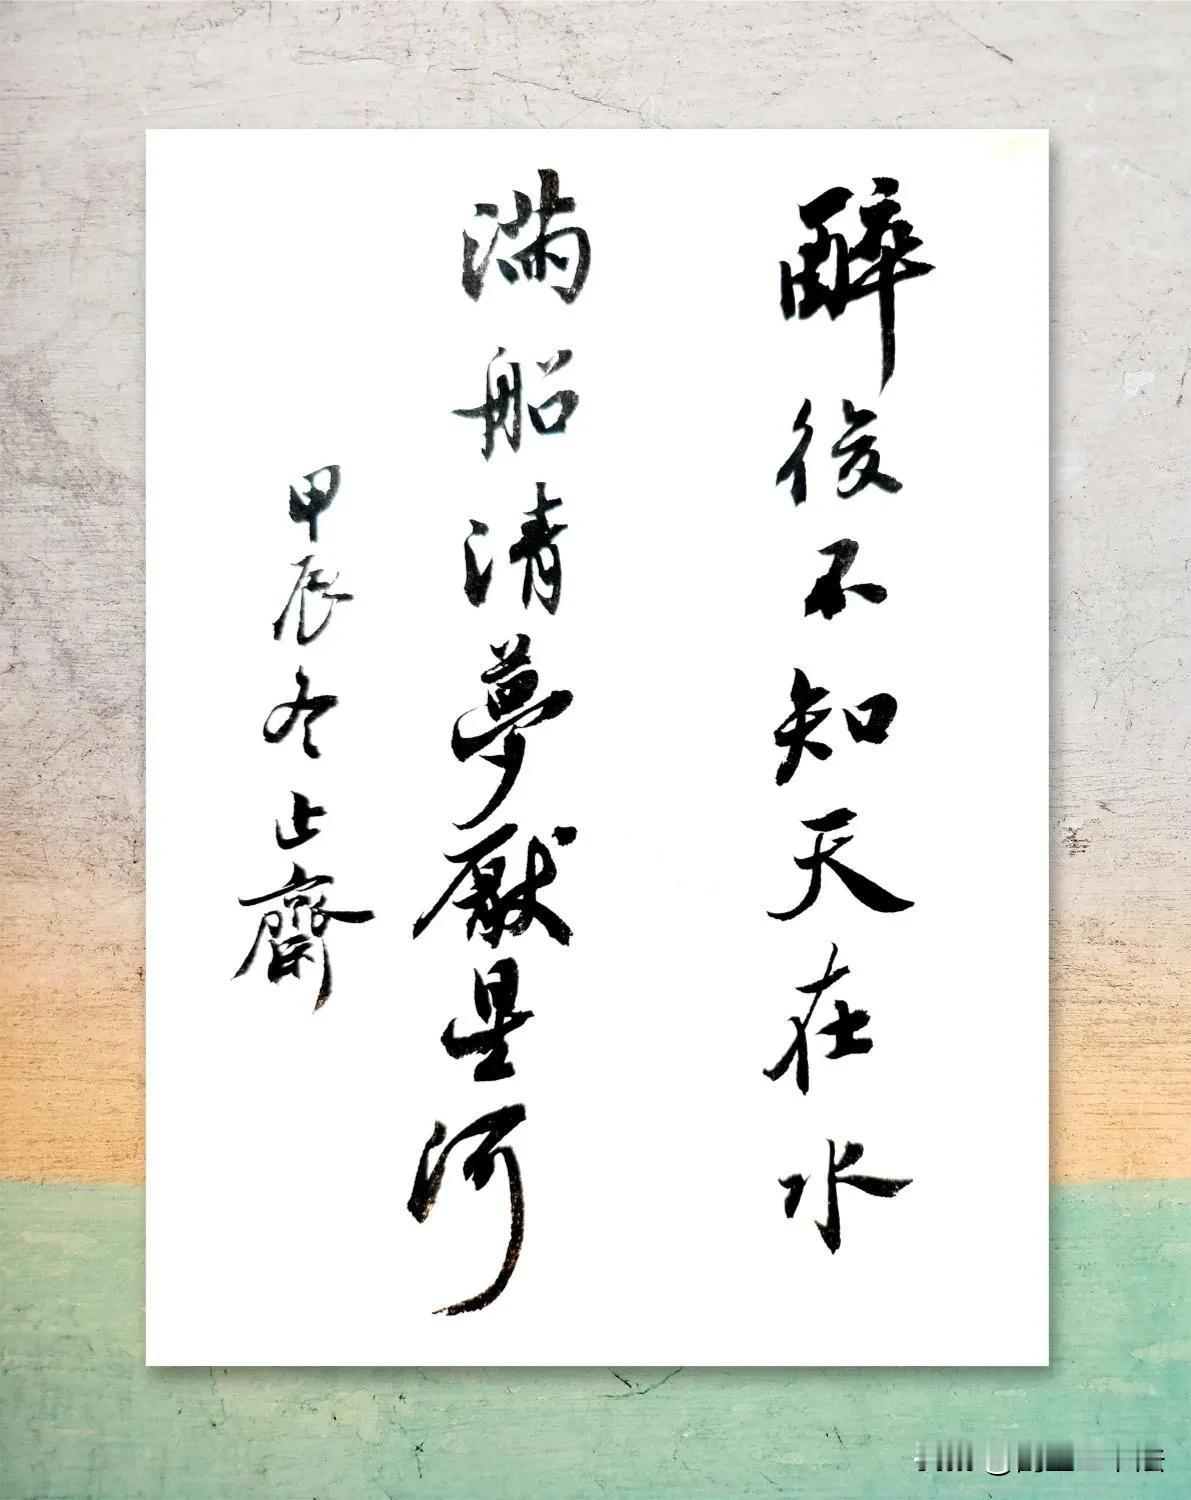 醉後不知天在水
滿船清夢厭星河
甲辰冬止齋